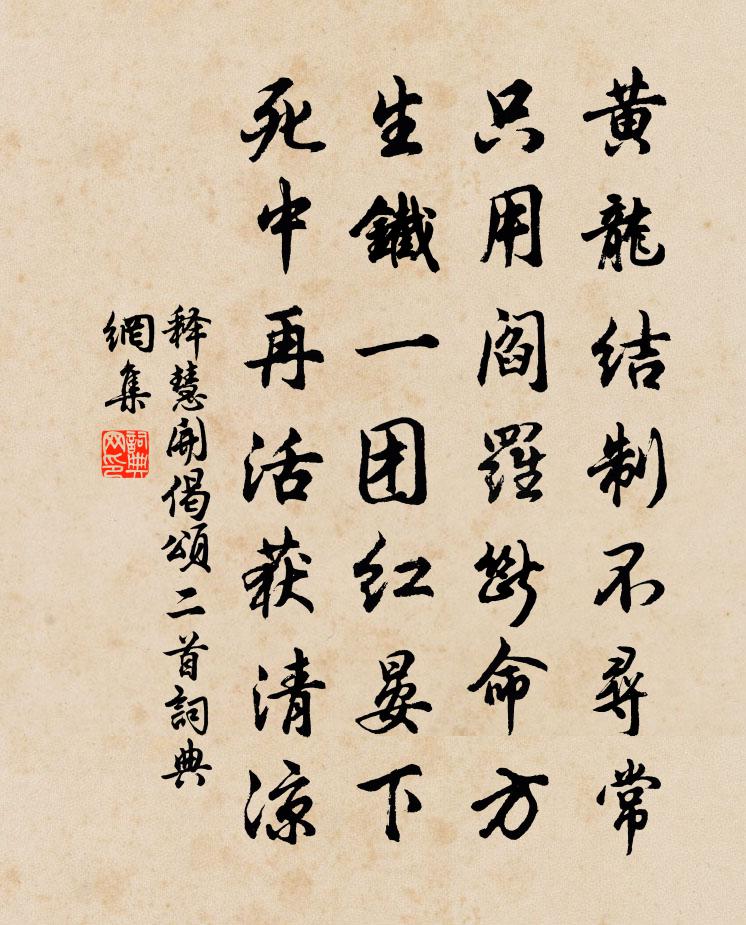 黄龍结制不尋常
只用阎羅斷命方
生鐵一团红晏下
死中再活获清凉
释慧開偈頌二首詞典
網集
詞典网印